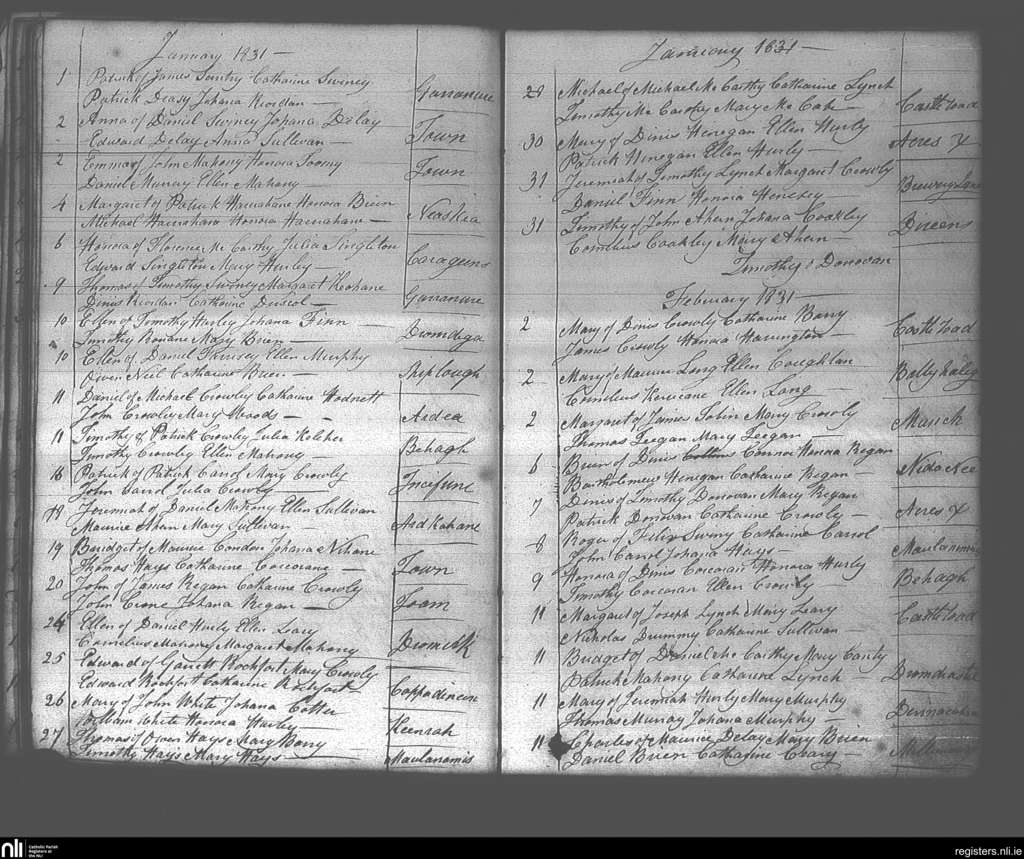 January 1831 —
1 Patrick of James Suntry Catharine Swiney
Patrick Deasy Johana Riordan — Garranure
2 Anna of Daniel Swiney Johana Delay
Edward Delay Anna Sullivan — Town
2 Emma of John Mahony Honora Toomy
Daniel Murray Ellen Mahony — Town
4 Margaret of Patrick Hanrahane Honora Brien
Michael Hanrahane Honora Hanrahane — Neaskia
6 Honora of Florence Mc Carthy Julia Singleton
Edward Singleton Mary Hurley — Coraguns
9 Thomas of Timothy Swiney Margaret Keohane
Dinis Riordan Catharine Driscol — Garranure
10 Ellen of Timothy Hurley Johana Finn —
Timothy Mary Brien — Dromdega
10 Ellen of Daniel Ellen Murphy
Owen Neil Catharine Brien — Shiplough
11 Daniel of Michael Crowley Catharine Hodnett
John Crowley Mary Woods — Ardea
11 Timothy of Patrick Crowley Julia Keleher
Timothy Crowley Ellen Mahony — Behagh
18 Patrick of Patrick Carrol Mary Crowly
John Carrol Julia Crowly — Incefune
18 Jeremiah of Daniel Mahony Ellen Sullivan
Maurice Ahern Mary Sullivan — Ardkahane
19 Bridget of Maurice Condon Johana Nihane
Thomas Hays Catharine Corcorane — Town
20 John of James Regan Catharine Crowly
John Crone Johana Regan — Toam
24 Ellen of Daniel Hurly Ellen Leary
Cornelius Mahony Margaret Mahony Dromidk
25 Edward of Garrett Rochfort Mary Crowly
Edward Rochfort Catharine Rochfort — Coppadineen
26 Mary of John White Johana Cotter
William White Honora Hurley — Keenrath
27 Thomas of Owen Hays Mary Barry
Timothy Hays Mary Hays — Maulanimis
January 1831 —
28 Michael of Michael Mc Carthy Catharine Lynch
Timothy Mc Carthy Mary Mc Cab — Castle load
30 Mary of Dinis Henegan Ellen Hurly
Patrick Henegan Ellen Hurly — Acres X
31 Jeremiah of Timothy Lynch Margaret Crowly
Daniel Finn Honora Henesey Brewery Lane
31 Timothy of John Ahern Johana Coakley
Cornelius Coakley Mary Ahern — Direens
Timothy O Donovan
February 1831 —
2 Mary of Dinis Crowly Catharine Barry
James Crowly Honora Harrington Castle load
2 Mary of Maurice Long Ellen Coughlan
Cornelius Ellen Long — Ballyhaleg
2 Margaret of James Tobin Mary Crowly
Thomas Teegan Mary Teegan — Marsh
6 Brien of Dinis Connor Honora Regan
Bartholemew Henegan Catharine Regan
7 Dinis of Timothy Donovan Mary Regan
Patrick Donovan Catharine Crowly — Acres X
8 Roger of Felix Swiny Catharine Carrol
John Carrol Johana Hays — Maulanimis
9 Honora of Dinis Corcoran Honora Hurly
Timothy Corcoran Ellen Crowly Behagh
11 Margaret of Joseph Lynch Mary Leary
Nicholas Drummy Catharine Sullivan Castle load
11 Bridget of Daniel Mc Carthy Mary Canty
Patrick Mahony Catharine Lynch
11 Mary of Jeremiah Hurly Mary Murphy
Thomas Murray Johana Murphy —
11 Charles of Maurice Delay Mary Brien
Daniel Brien Catharine Crary
nli Catholic Parish Registers at the NLI
registers.nli.ie